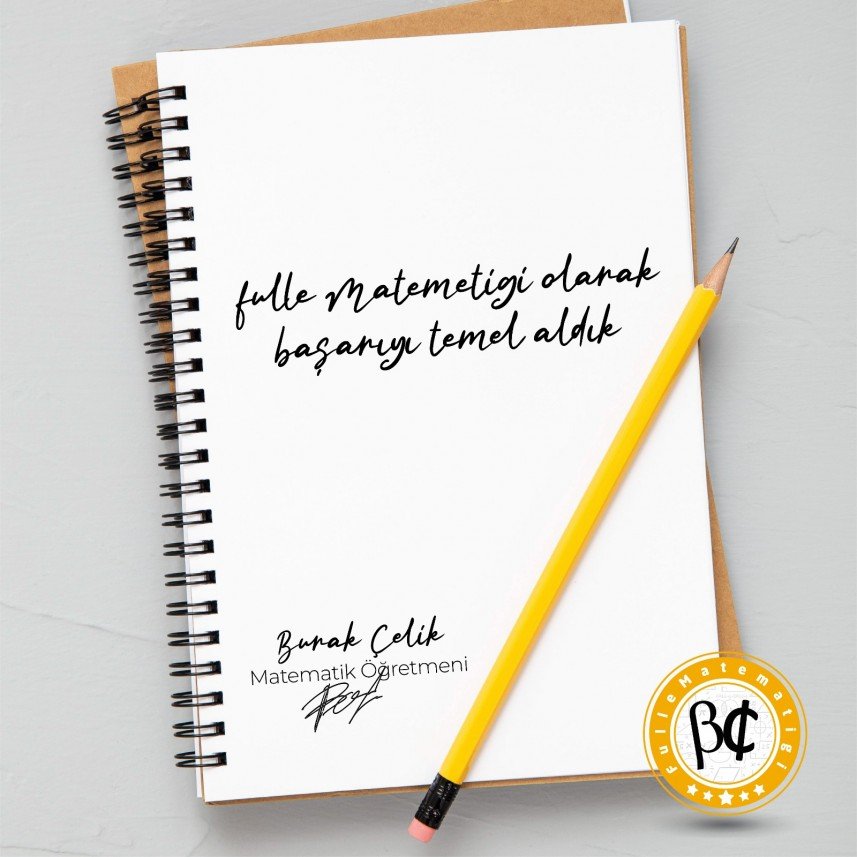 fulle Matemetigi olarak
başarıyı temel aldık
Burak Çelik
Matematik Öğretmeni
FulleMatematigi
β₵